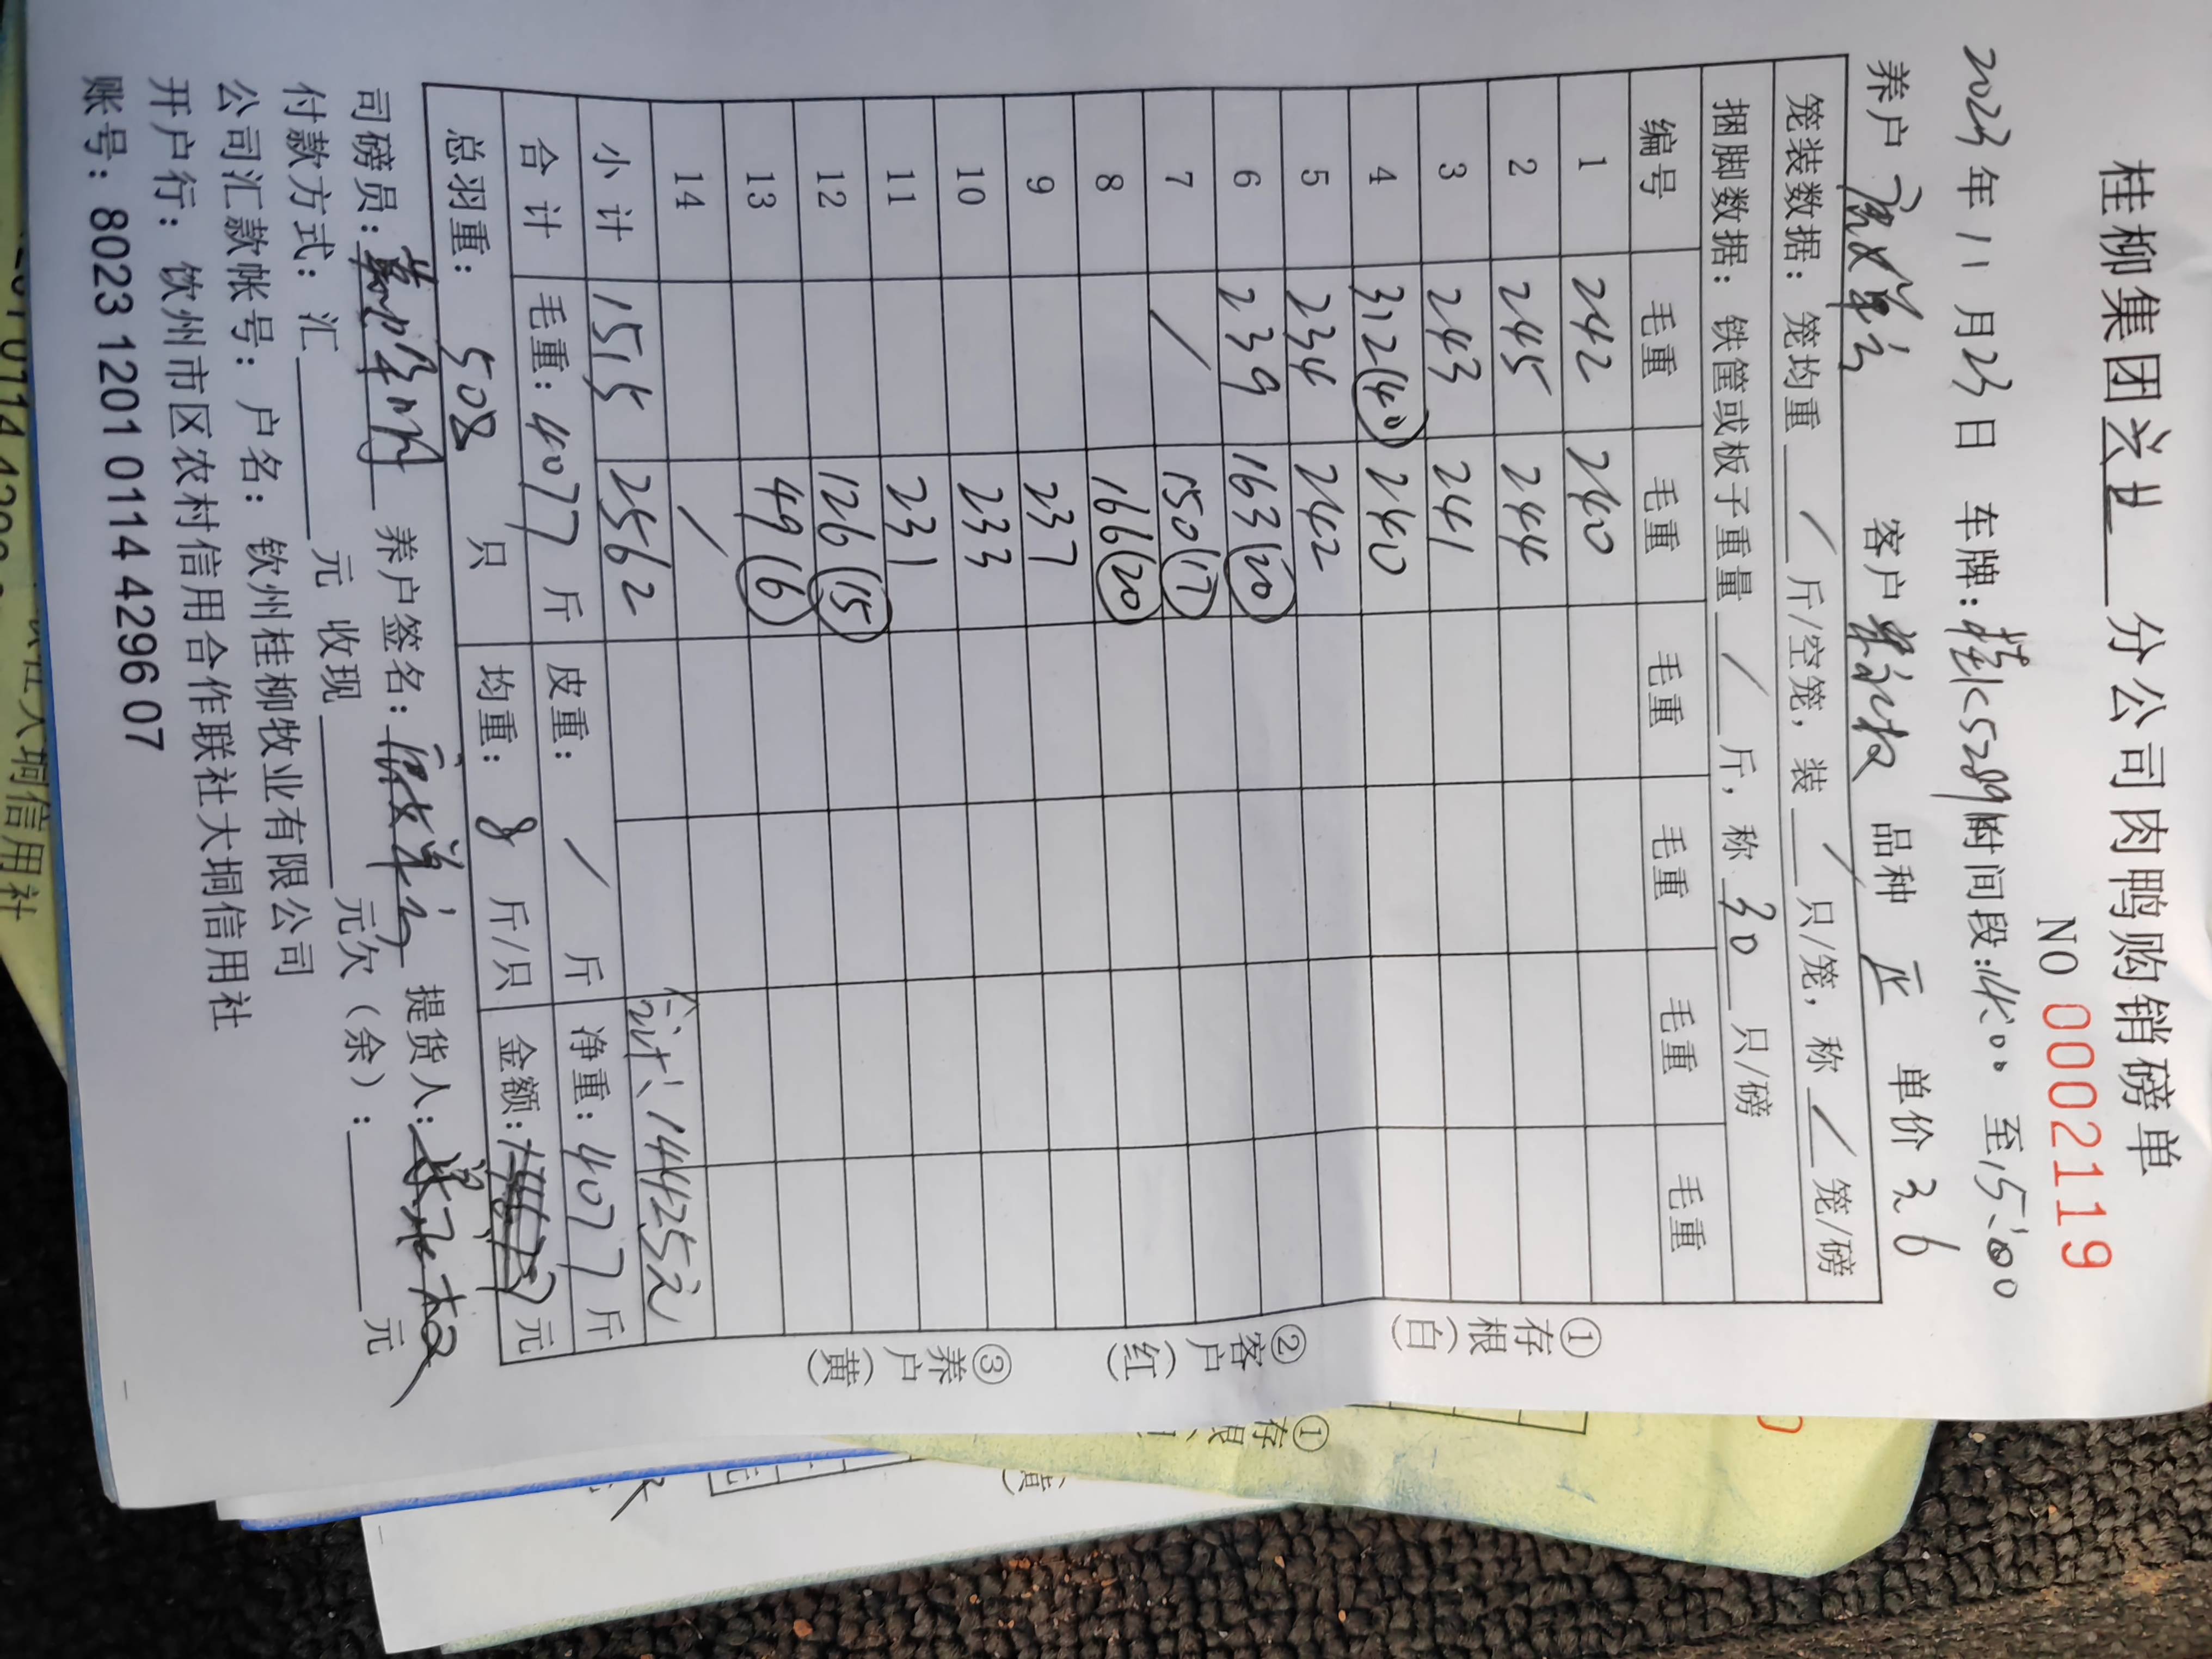 桂柳集团兴业分公司肉鸭购销磅单
NO 0002119
2023年11月23日 车牌:桂K5289 时间段:14:00 至15:00
养户 客户 品种 正 单价 3.6
笼装数据: 笼均重 / 斤/空笼, 装 / 只/笼, 称 / 笼/磅
捆脚数据: 铁筐或板子重量 / 斤, 称 30 只/磅
编号 毛重 毛重 毛重 毛重 毛重 毛重
1 242 240
2 245 244
3 243 241
4 312(40) 240
5 234 242
6 239 163(20)
7 / 150(17)
8 166(20)
9 237
10 233
11 231
12 126(15)
13 49(6)
14 /
小计 1515 2562 合计: 14425元
合计 毛重: 4077 斤 皮重: / 斤 净重: 4077 斤
总羽重: 508 只 均重: 8 斤/只 金额: 元
司磅员: 养户签名: 提货人:
付款方式: 汇 元 收现 元欠(余): 元
公司汇款帐号: 户名: 钦州桂柳牧业有限公司
开户行: 钦州市区农村信用合作联社大垌信用社
账号: 8023 1201 0114 4296 07
①存根(白)
②客户(红)
③养户(黄)